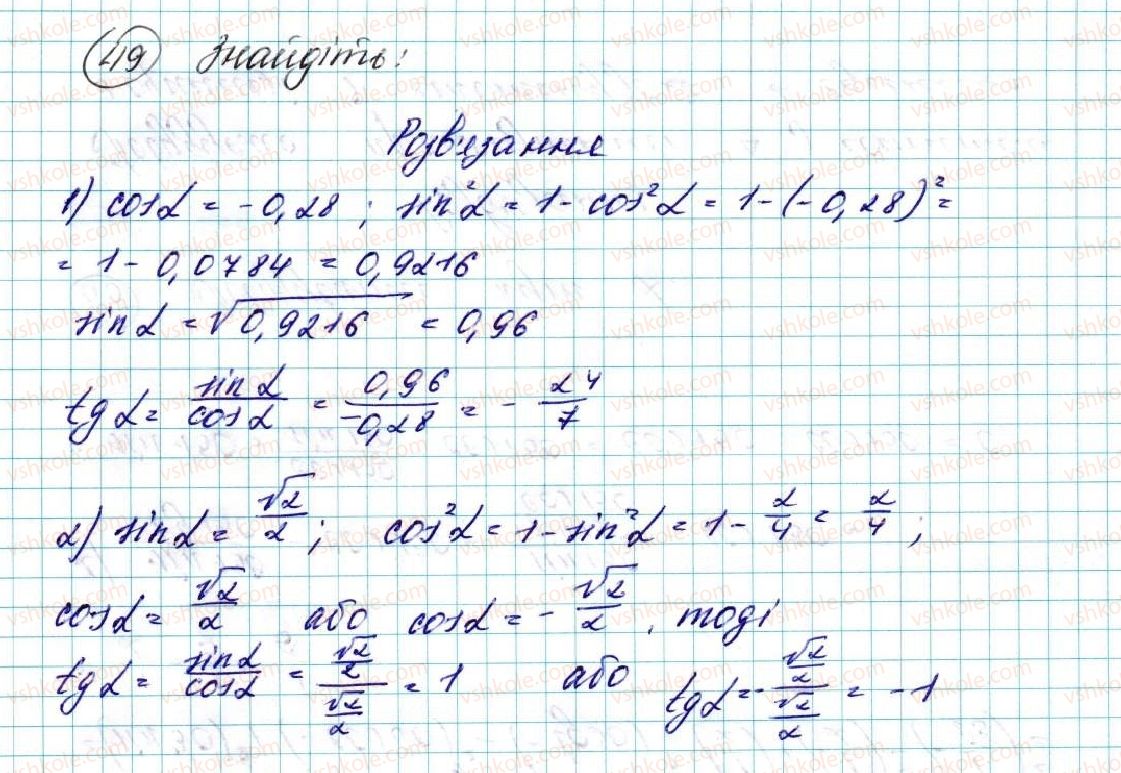 49 Знайдіть:
Розв'язання
1) cosα = -0,28 ; sin²α = 1 - cos²α = 1 - (-0,28)² =
= 1 - 0,0784 = 0,9216
sinα = √0,9216 = 0,96
tgα = sinα/cosα = 0,96/-0,28 = - 24/7
2) sinα = √2/2 ; cos²α = 1 - sin²α = 1 - 2/4 = 2/4 ;
cosα = √2/2 або cosα = - √2/2 , тоді
tgα = sinα/cosα = (√2/2)/(√2/2) = 1 або tgα = - (√2/2)/(√2/2) = -1
vshkole.com